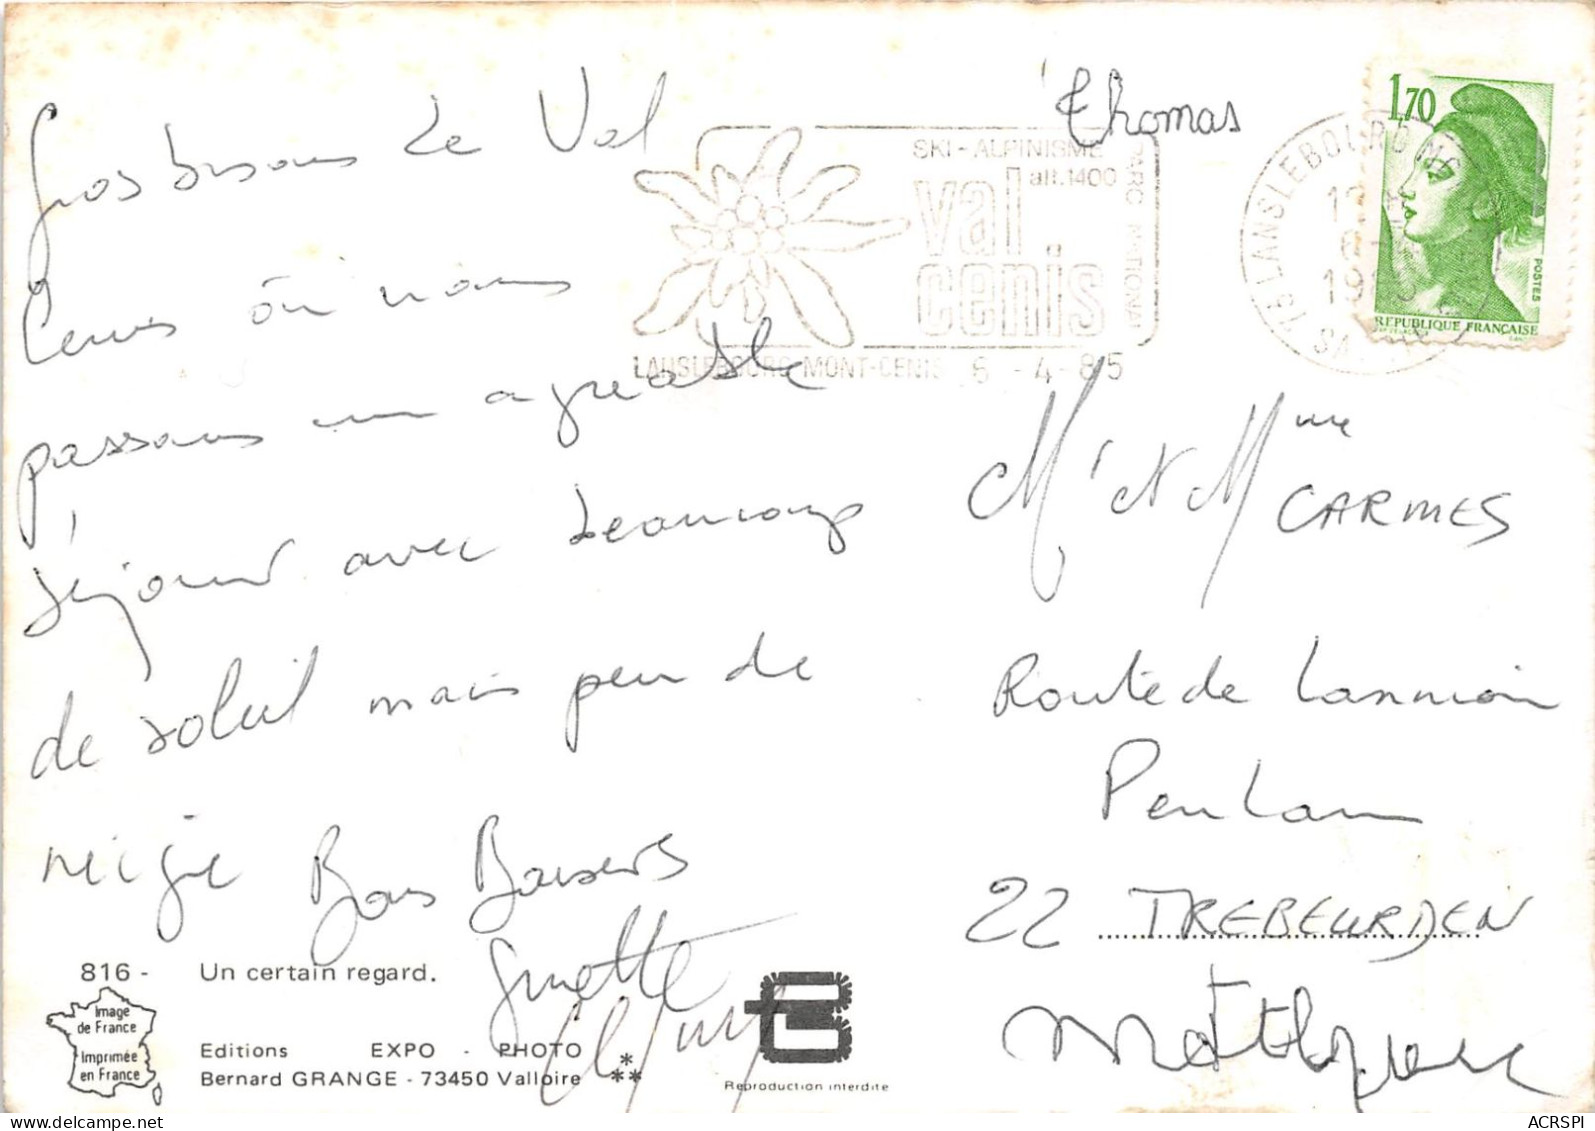 Gros bisous de Val
Cenis où nous
passons un agreable
séjour avec beaucoup
de soleil mais peu de
neige Bons Baisers
Ginette
816 - Un certain regard.
Image
de France
Imprimée
en France
Editions EXPO - PHOTO
Bernard GRANGE - 73450 Valloire
Reproduction interdite
Thomas
SKI - ALPINISME
alt.1400
val
cenis
PARC NATIONAL
LANSLEBOURG MONT-CENIS 6 - 4 - 85
LANSLEBOURG MONT
1,70
POSTES
REPUBLIQUE FRANÇAISE
Mr et Mme CARMES
Route de Lannion
Penlan
22 TREBEURDEN
ACRSPI